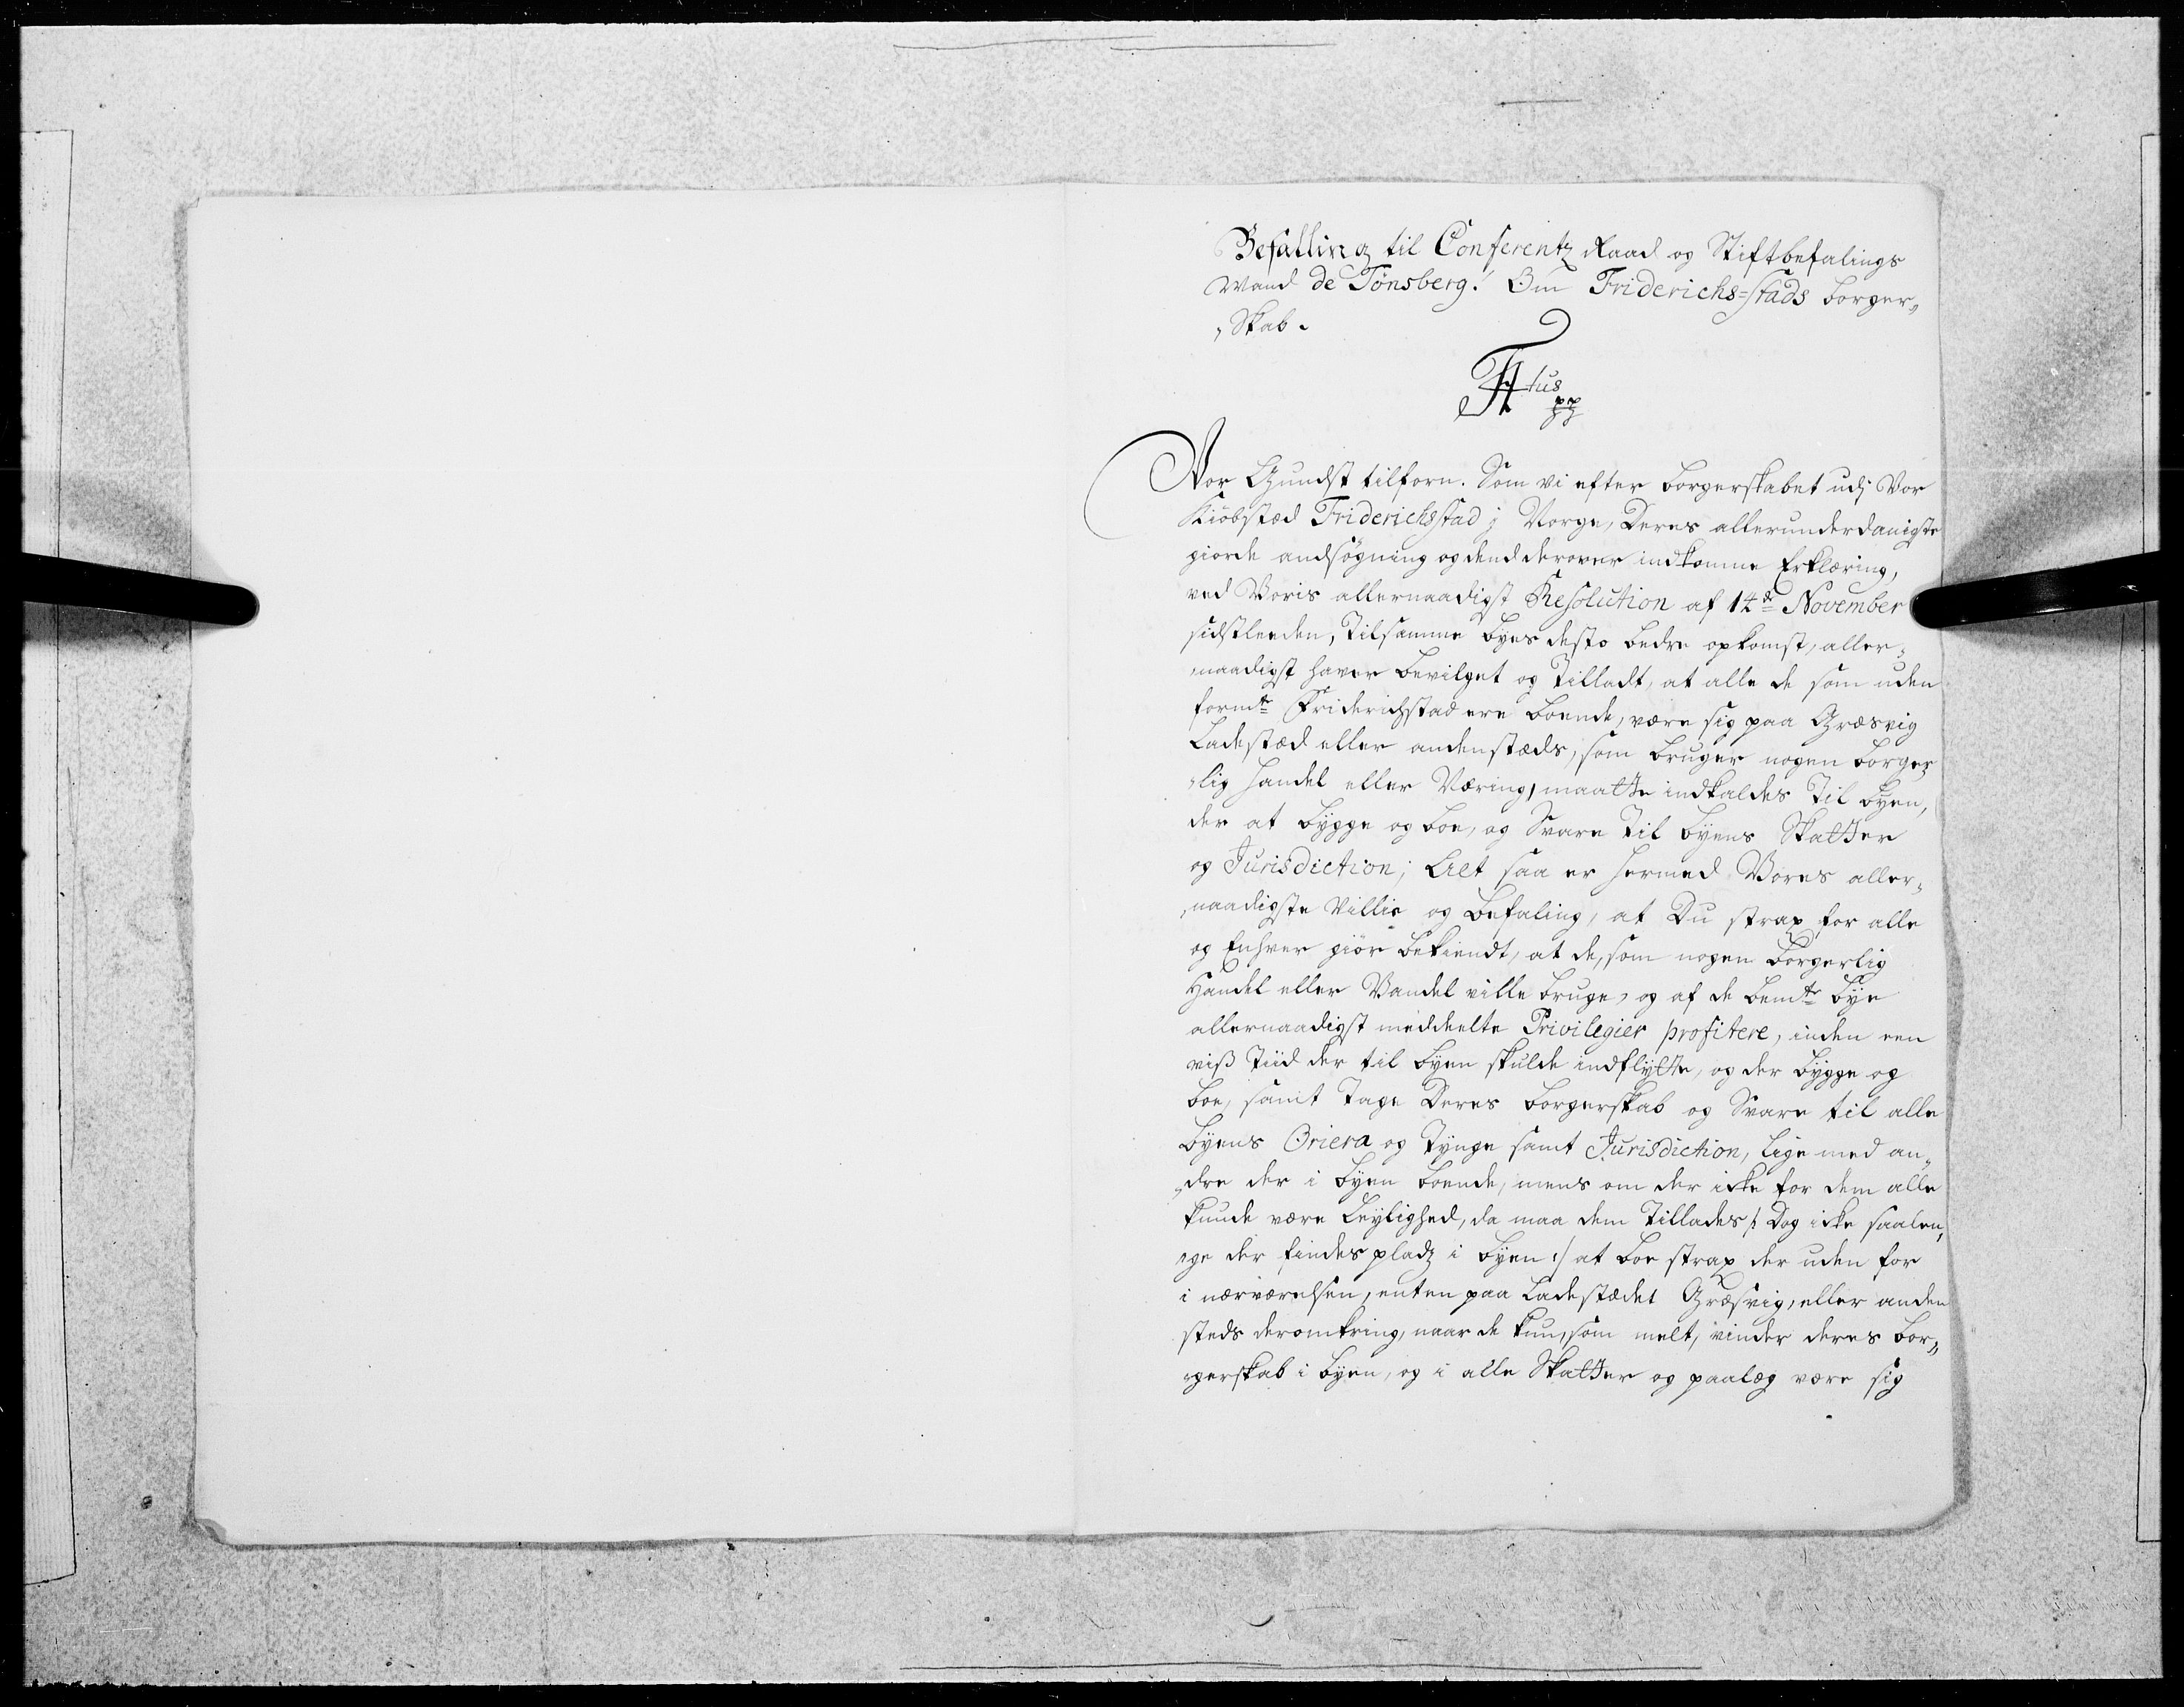 Befalling til Conferentz Raad og Stiftbefalings
Mand de Tønsberg! Om Friderichs=stads borger„
„Skab.
F4tus
pp
Vor Gunst tilforn. Som vi efter borgerskabet udj Vor
Kiøbstæd Friderichsstad j Norge, Deres allerunderdanigste
giorde andsøgning og dend derover indkomne Erklæring,
ved Voris allernaadigst Resolution af 14de November
sidstleeden, Til samme byes desto bedre opkomst, aller„
„naadigst haver bevilget og Tilladt, at alle de som uden
formte Friderichstad ere boende, være sig paa Græsvig
Ladestæd eller andenstæds, som bruger nogen borger„
„lig handel eller Næring, maatte indkaldes Til byen,
der at bygge og boe, og Svare Til byens Skatter
og Jurisdiction; Alt saa er hermed Vores aller„
„naadigste Villie og befaling, at Du strax for alle
og Enhver giør bekiendt, at de, som nogen borgerlig
Handel eller Vandel ville bruge, og af de bemte bye
allernaadigst meddeelte Privilegier profitere, inden een
viss Tiid der til byen skulde indflytte, og der bygge og
boe, samt Tage Deres borgerskab og Svare til alle
byens Oniera og Tynge samt Jurisdiction, lige med an„
„dre der i byen boende, mens om der icke for dem alle
kunde være Leylighed, da maa dem Tillades /: Dog icke saalen„
„ge der findes pladz i byen :/ at boe strax der uden for
i nærværelsen, enten paa Ladestædet Græsvig, eller anden
steds deromkring, naar de kun, som melt, vinder deres bor„
„gerskab i byen, og i alle Skatter og paalæg være sig